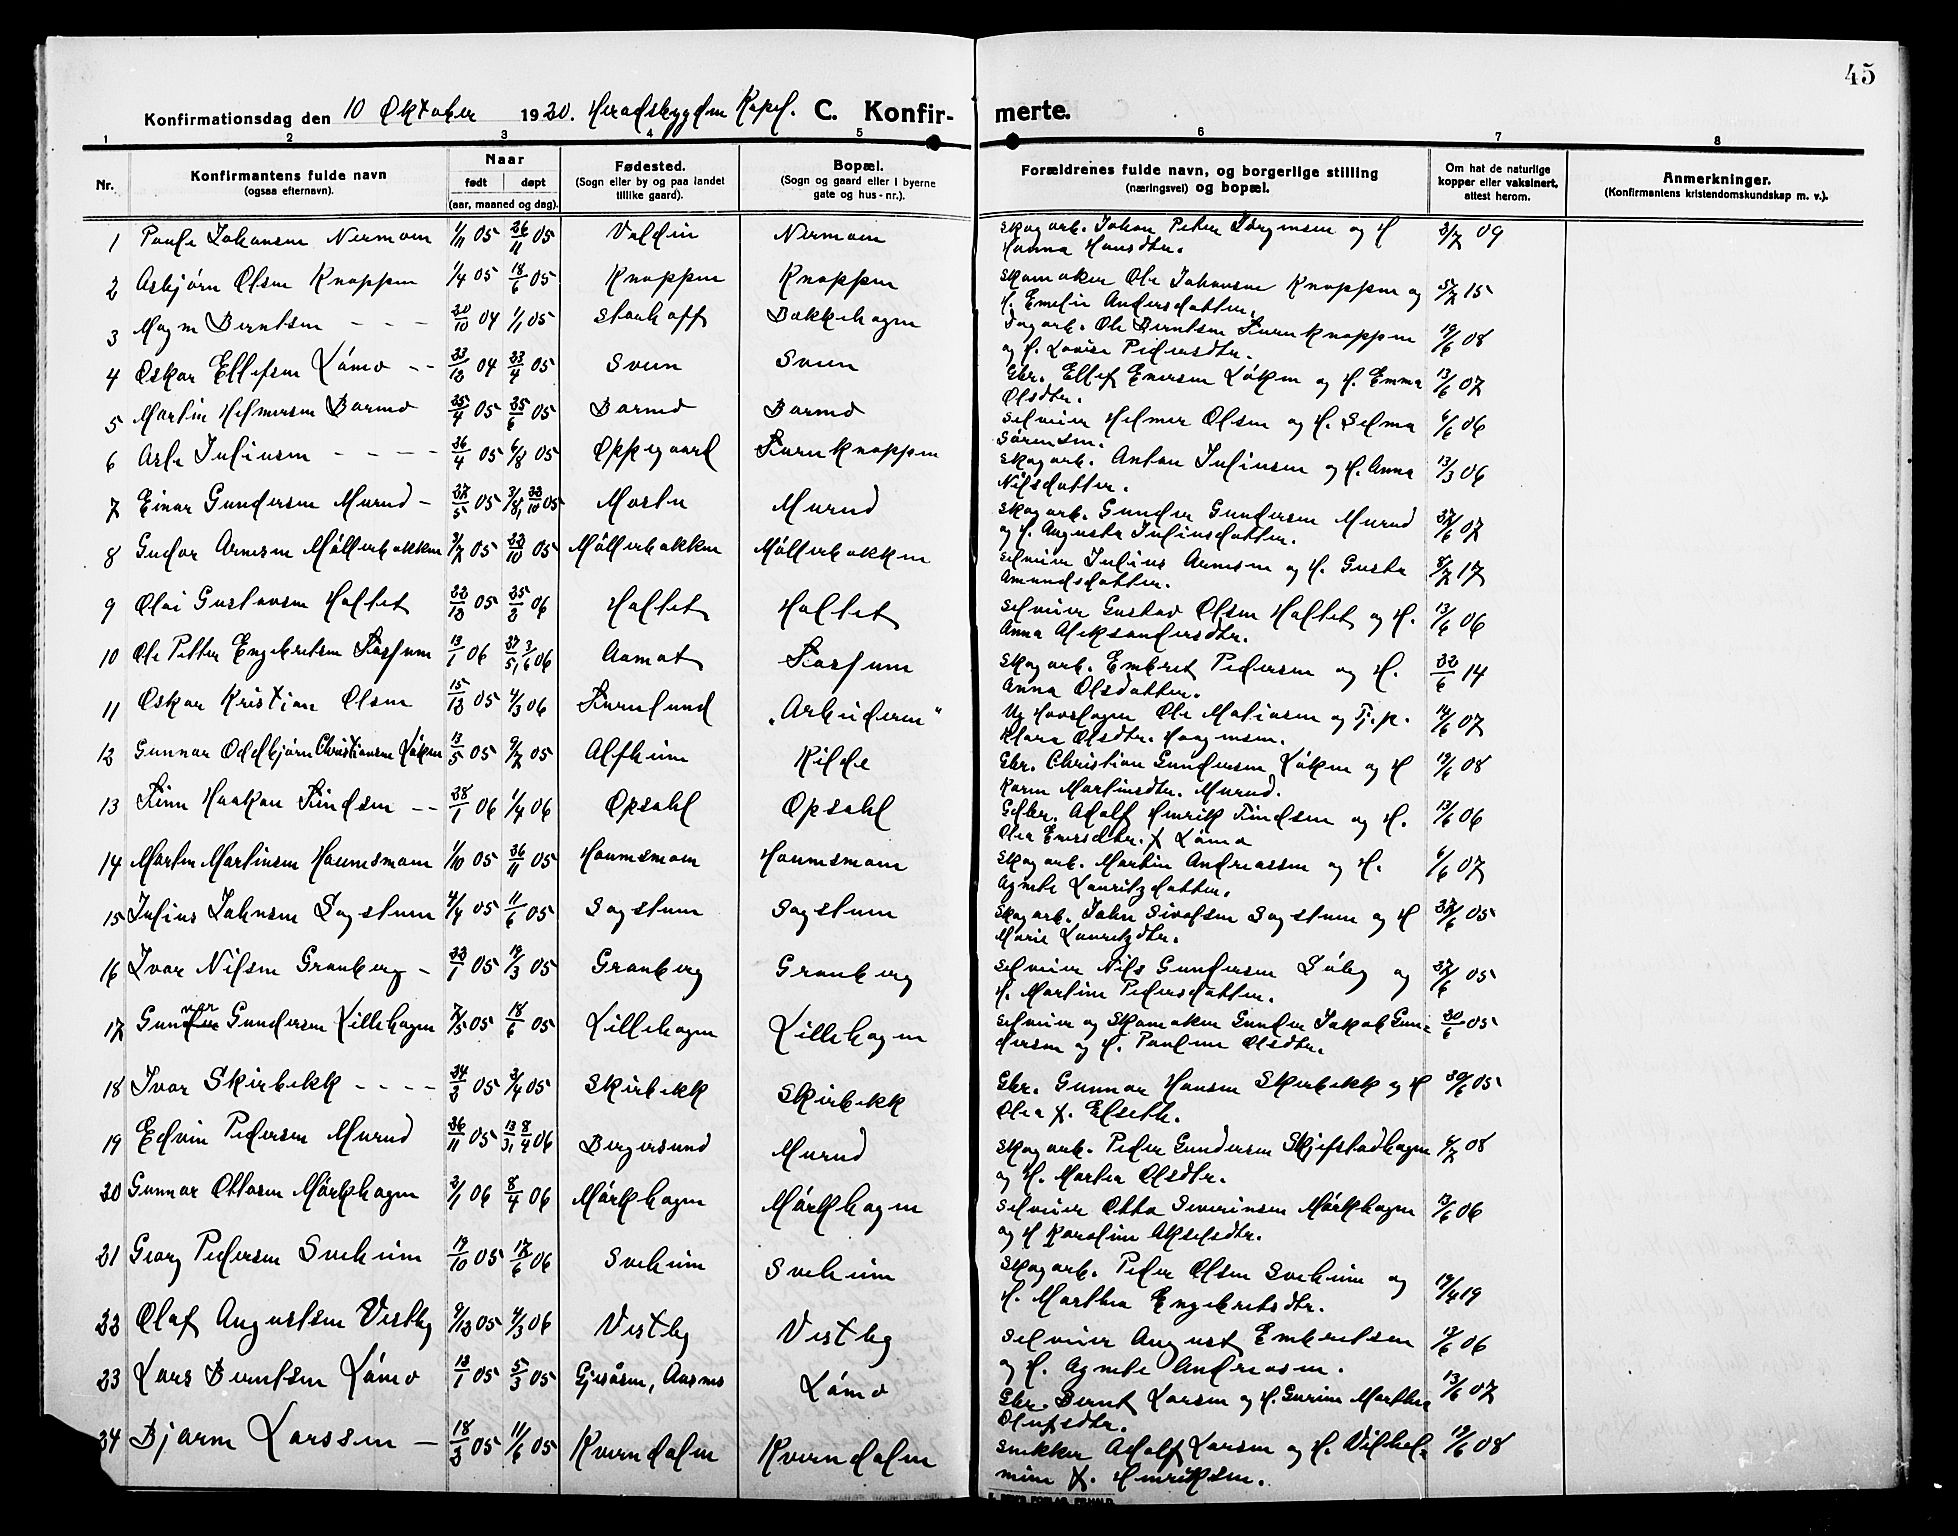 45
Konfirmationsdag den 10 Oktober 1920. Heradsbygden Kapel. C. Konfirmerte.
1 2 3 4 5 6 7 8
Nr. Konfirmantens fulde navn (ogsaa efternavn). Naar født døpt (aar, maaned og dag). Fødested. (Sogn eller by og paa landet tillike gaard). Bopæl. (Sogn og gaard eller i byerne gate og hus-nr.). Forældrenes fulde navn, og borgerlige stilling (næringsvei) og bopæl. Om hat de naturlige kopper eller vaksinert, attest herom. Anmerkninger. (Konfirmantens kristendomskundskap m. v.).
1 Paule Johansen Nermoen 1/11 05 26/11 05 Voldin Nermoen Skogarb. Johan Peter Jørgensen og H
Hanna Hansdtr. 3/7 09
2 Asbjørn Olsen Knappen 1/4 05 18/6 05 Knappen Knappen Skomaker Ole Johansen Knappen og
H. Emelie Andersdatter. 5/7 15
3 Magne Berntsen - - - 20/10 04 1/1 05 Bakkehagen Ole Berntsen Furuknappen
og H. Lovise Pedersdtr. 19/6 08
4 Oskar Ellefsen Lömo - - 23/12 04 23/4 05 Sveen Sveen Gbr. Ellef Enersen Löken og H. Emma
Olsdtr. 13/6 07
5 Martin Helmersen Barmo 25/4 05 25/6 05 Barmo Barmo Selveier Helmer Olsen og H. Selma
Sörensen. 6/6 06
6 Asle Juliussen - - - - 26/4 05 6/8 05 Oppegaard Furuknappen Skogarb. Anton Juliussen og H. Anna
Nilsdatter. 13/3 06
7 Einar Gundersen Murud - 27/5 05 3/8, 22/10 05 Murud Skogarb. Gunder Gundersen Murud
og H. Augusta Juliusdatter. 27/6 07
8 Gudor Arnesen Möllerbakken 3/7 05 22/10 05 Möllerbakken Möllerbakken Selveier Julius Arnesen og H. Gusta
Amundsdatter. 8/7 17
9 Olai Gustavsen Haltet 22/12 05 25/2 06 Haltet Haltet Selveier Gustav Olsen Haltet og H.
Anna Aleksandersdtr. 13/6 06
10 Ole Petter Engebretsen Fossum 13/1 06 27/5, 3/6 06 Aamot Fossum Skogarb. Embret Pedersen og H.
Anna Olsdatter. 22/6 14
11 Oskar Kristian Olsen 15/12 05 4/3 06 Furulund „Arbideren" Ug Hovslager Ole Matiasen og Fj. p.
Klara Olsdtr. Haagensen. 14/6 07
12 Gunnar Oddbjørn Christiansen Löken 13/5 05 9/7 05 Alfheim Kilde Gbr. Christian Gundersen Löken og H
Karen Martinsdtr. Murud. 19/6 08
13 Finn Haakon Findsen - - 28/1 06 1/4 06 Opsahl Opsahl Gdbr. Adolf Henrik Findsen og H.
Olea Enersdtr. f. Lömo 13/6 06
14 Martin Martinsen Haunsmoen 1/10 05 26/11 05 Haunsmoen Haunsmoen Skogarb. Martin Andreassen og H.
Agnete Lauritzdatter. 6/6 07
15 Julius Johnsen Sagstuen 4/4 05 11/6 05 Sagstuen Sagstuen Skogarb. John Sivalsen Sagstuen og H
Marie Lauretzdtr. 27/6 05
16 Ivar Nilsen Granberg - 22/1 05 19/3 05 Granberg Granberg Selveier Nils Gundersen Söby og
H. Martine Pedersdatter. 27/6 05
17 Gunvar Gundersen Lillehagen 7/5 05 18/6 05 Lillehagen Lillehagen Selveier og Skomaker Gunder Jakob Gun-
dersen og H. Pauline Olsdtr. 20/6 05
18 Ivar Skirbekk - - - - 24/2 05 2/4 05 Skirbekk Skirbekk Gbr. Gunnar Hansen Skirbekk og H
Olea f. Elseth. 30/6 05
19 Edvin Pedersen Murud 26/11 05 13/3, 8/4 06 Bergersund Murud Skogarb. Peder Gundersen Skjefstadhagen
og H. Martea Olsdtr. 6/7 08
20 Gunnar Ottosen Mörkhagen 2/1 06 8/4 06 Mörkhagen Mörkhagen Selveier Otto Severinsen Mörkhagen
og H Karoline Akselsdtr. 13/6 06
21 Georg Pedersen Sveheim 19/10 05 17/6 06 Sveheim Sveheim Skogarb. Peder Olsen Sveheim og
H. Marthea Engebretsdtr. 19/4 19
22 Olaf Augustsen Vestby 9/12 05 4/3 06 Vestby Vestby Selveier August Embretsen
og H. Agnete Andreasen. 13/6 06
23 Lars Berntsen Lömo 13/1 05 5/3 05 Gjesåsen, Aasnes Lömo Gbr. Bernt Larsen og H. Gurine Marthea
Olufsdtr. 13/6 07
24 Bjarne Larssen - 18/3 05 11/6 05 Kverndalen Kverndalen Snekker Adolf Larsen og H. Vilhel-
mine f. Henriksen. 19/6 08